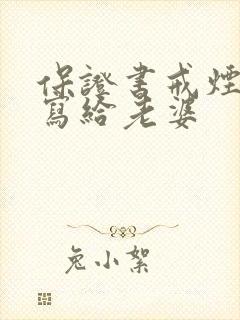 保證書戒煙
寫給老婆
兔小絮